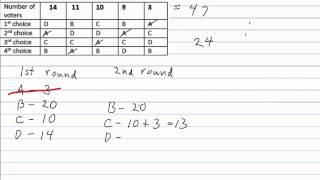 Number of voters 14 11 10 9 3 = 47
1st choice D B C B A
2nd choice A D A C D
3rd choice C C B A B
4th choice B A D D C
24
1st round 2nd round
A - 3
B - 20 B - 20
C - 10 C - 10 + 3 = 13
D - 14 D -